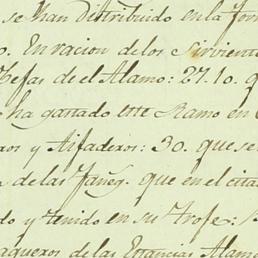 se han distribuido en la for
o. En racion de los Sirvient
Jefas de el Alamo: 27.10. q
o ha gastado este Ramo en
ros y Aifaderos: 30. que se
de las Faneg. que en el cita
do y tenido en su Trofe:
aqueros de las Estancias Alamo